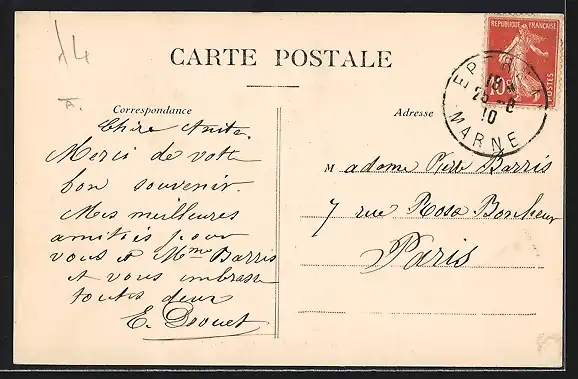 14
A.
CARTE POSTALE
Correspondance
Chère Anita.
Merci de votre
bon souvenir.
Mes meilleures
amitiés pour
vous & Mme Barris
et vous embrasse
toutes deux
E. Drouet
Adresse
Madame Barris
7 rue Rosa Bonheur
Paris
REPUBLIQUE FRANÇAISE
10c
POSTES
EPERNAY
25-8
10
MARNE